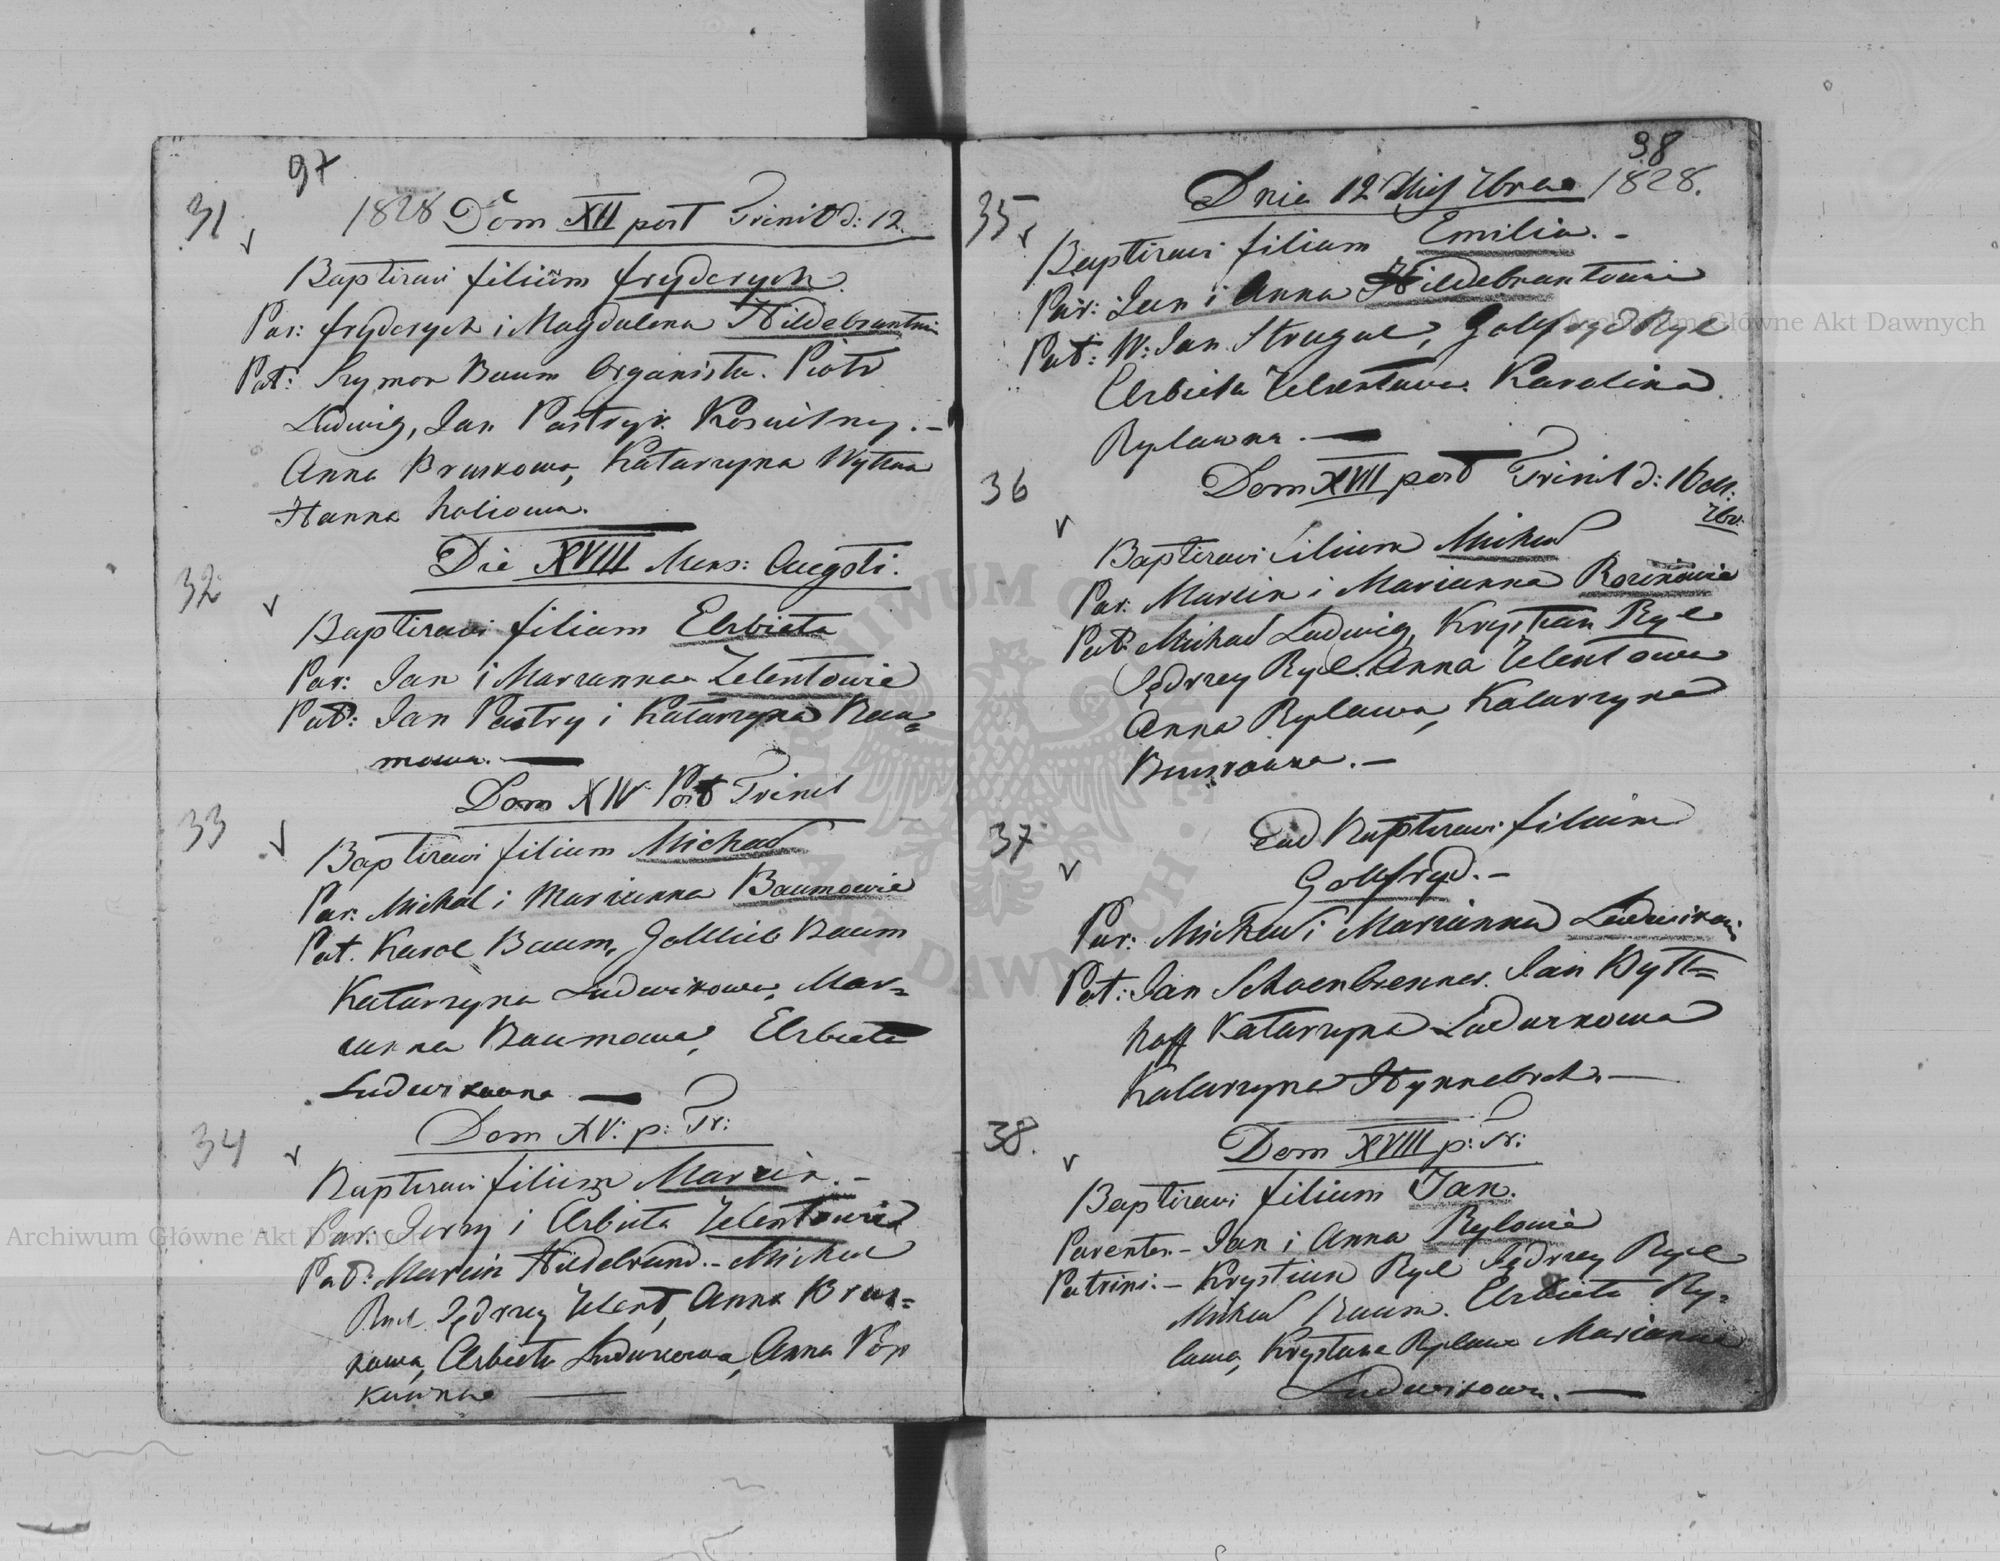 97
31
1828 Dom XII post Trinit d: 12.
Baptizavi filium fryderych
Par: fryderych i Magdalena Hildebrantowi
Pat: Szymon Baum Organista. Piotr
Ludwig, Jan Pastryk Koscielny. –
Anna Bruskowa, Katarzyna
Hanna
32
Die XVIII Mens: Augsti.
Baptizavi filium Elzbieta
Par: Jan i Marianna Zelentowie
Pat: Jan Pastry i Katarzyna Bau=
mowa. —
33
Dom XIV Post Trinit
Baptizavi filium Michał
Par: Michał i Marianna Baumowie
Pat. Karol Baum, Gottlieb Baum
Katarzyna Ludwikowa, Mar=
ianna Baumowa, Elzbieta
Ludwikowna —
34
Dom XV. p: Tr:
Baptizavi filium Marcin. –
Par: Jerzy i Elzbieta Zelentowie
Pat: Marcin Hildebrand. – Michał
Jędrzey Zelent, Anna Brus=
kowa, Elzbieta Ludwikowa, Anna Pop
kowna —
38
35
Dnia 12 Msc 7bra 1828.
Baptizavi filium Emilia. –
Par: Jan i Anna Hildebrantowie
Pat: W: Jan Strugal, Gottfryd Ryl
Elzbieta Zelentowa. Karolina
Rylowna. —
36
Dom XVII post Trinit d:
7br.
Baptizavi filium Michał
Par. Marcin i Marianna
Pat. Michał Ludwig, Krystian Ryl
Jędrzey Ryl. Anna Zelentowa
Anna Rylowa, Katarzyna
Bruskowna. –
37
Ead Baptizavi filium
Gottfryd. –
Par: Michał i Marianna Ludwikowi
Pat: Jan Schoenbrenner. Jan Wytt=
hoff Katarzyna Ludwikowa
Katarzyna —
38.
Dom XVIII p: Tr:
Baptizavi filium Jan.
Parentes – Jan i Anna Rylowie
Patrini. – Krystian Ryl Jędrzey Ryl
Michał Baum. Elzbieta Ry=
lowa, Krystyna Rylowa Marianna
Ludwikowa. —
Archiwum Główne Akt Dawnych
Archiwum Główne Akt Dawnych
ARCHIWUM GŁÓWNE AKT DAWNYCH